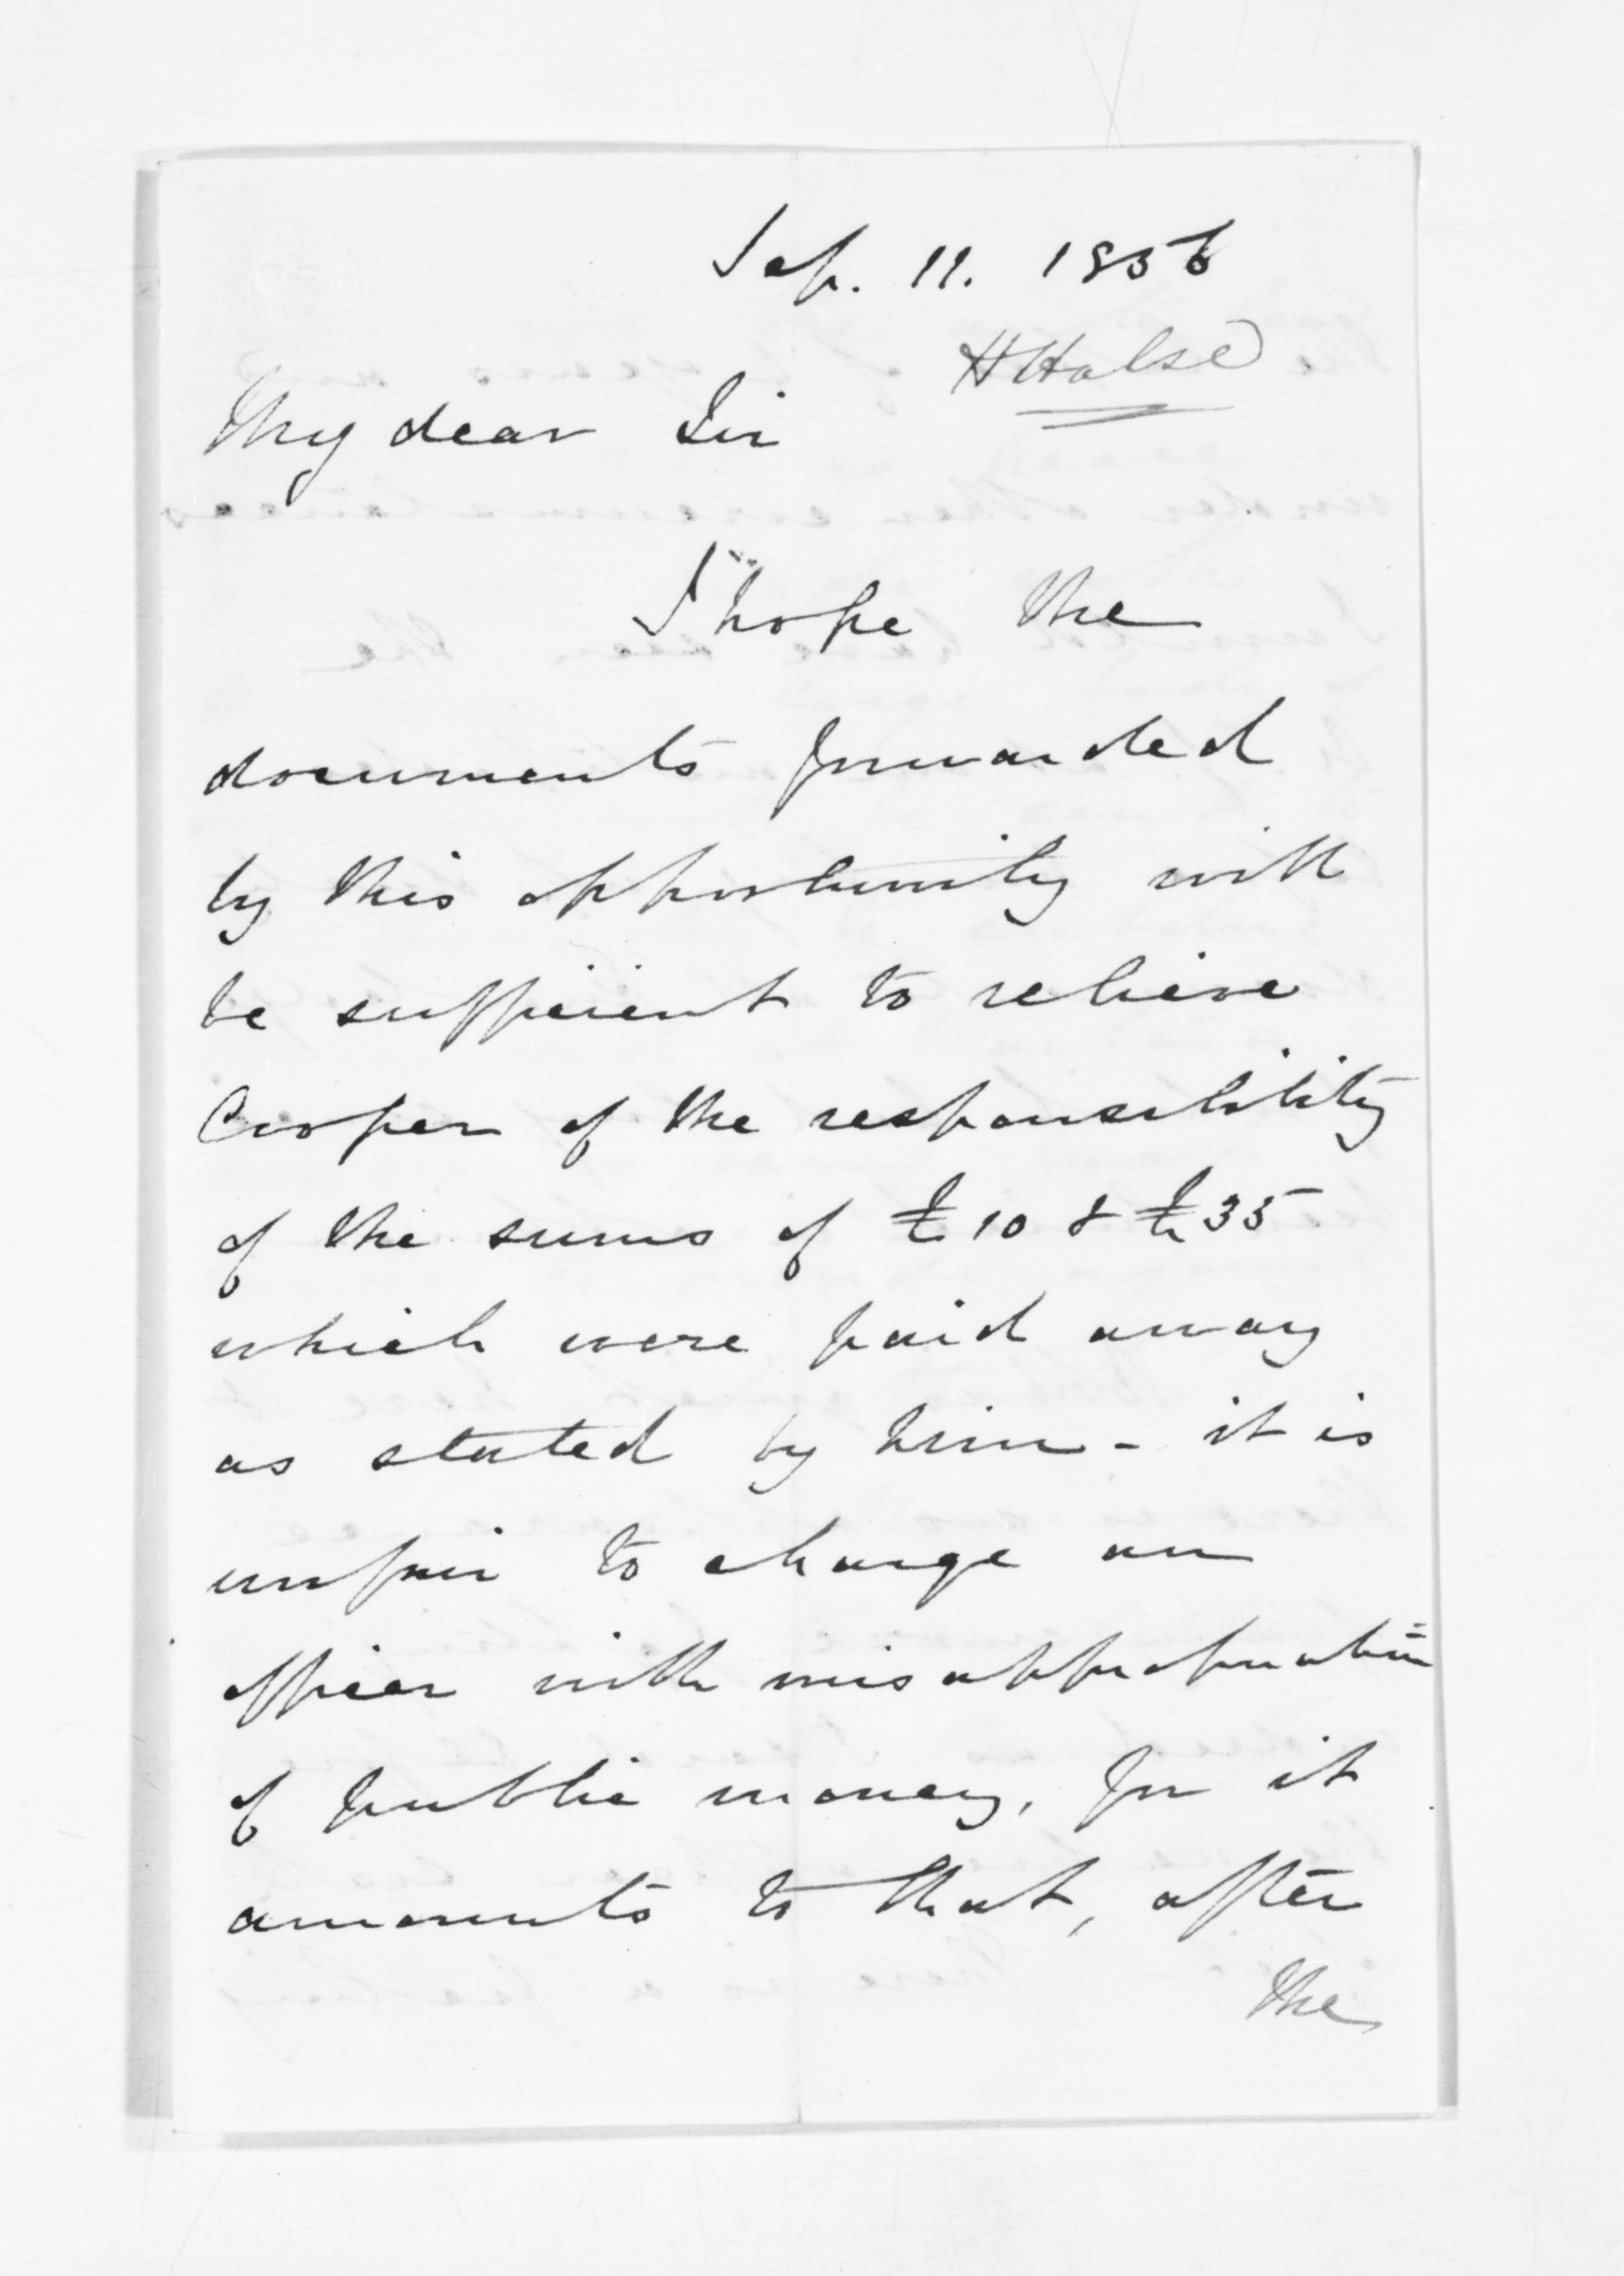 Sep. 11. 1856
H Halse
My dear Sir
I hope the
documents forwarded
by this opportunity will
be sufficient to relieve
Cooper of the responsibility
of the sums of £10 & £35
which were paid away
as stated by him - it is
unfair to charge an
officer with misappropriation
of public money, for it
amounts to that, after
the